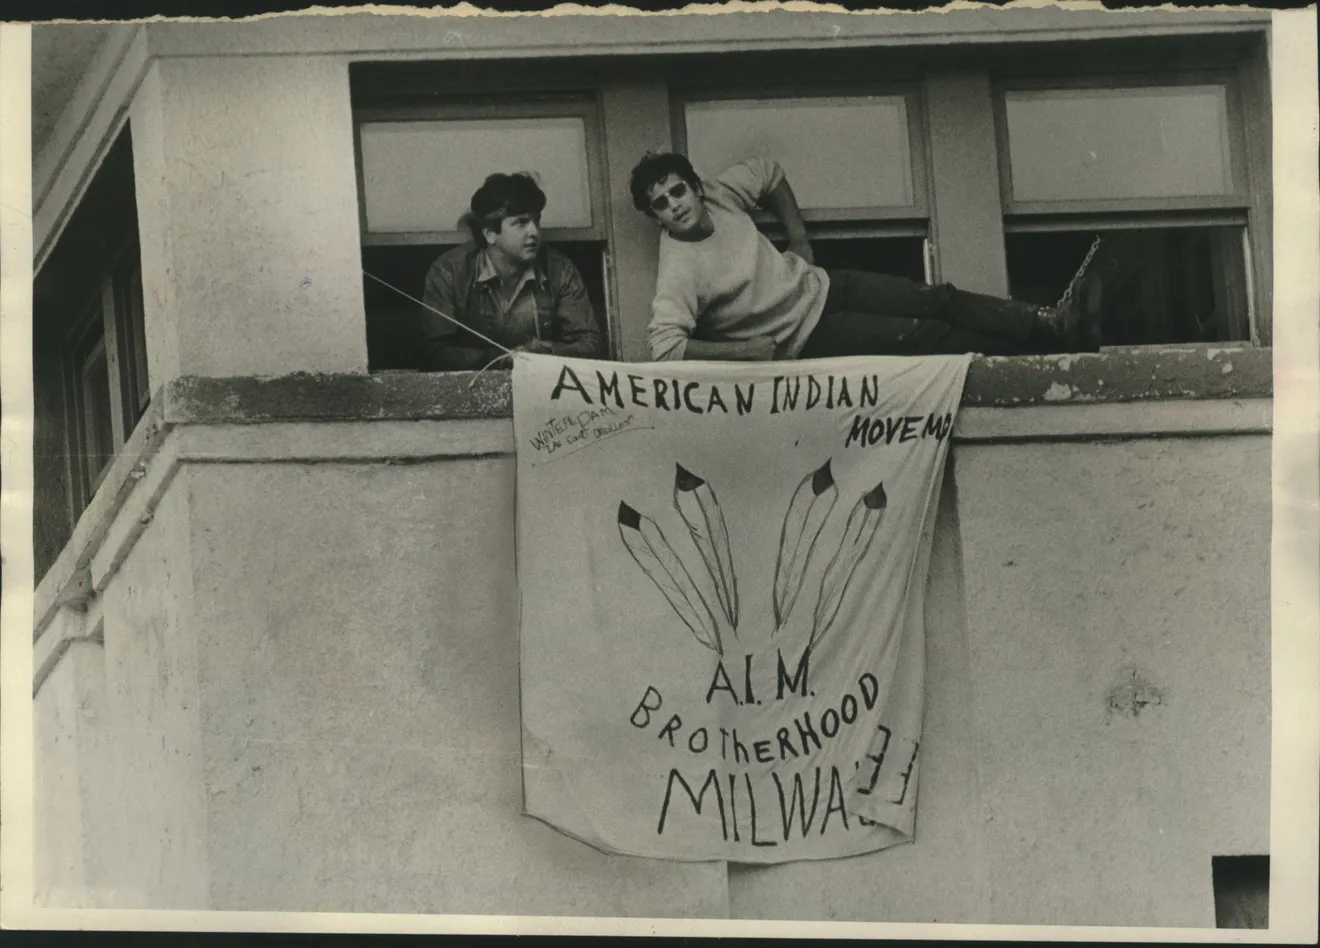 AMERICAN INDIAN
MOVEM
WINTER DAM
LAC COURT OREILLES
A.I.M.
BROThERHOOD
MILWA EE